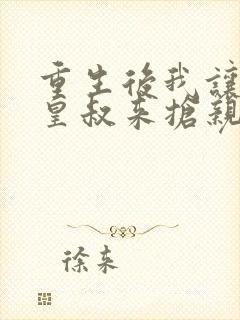 重生後我讓
皇叔來搶親
徐来